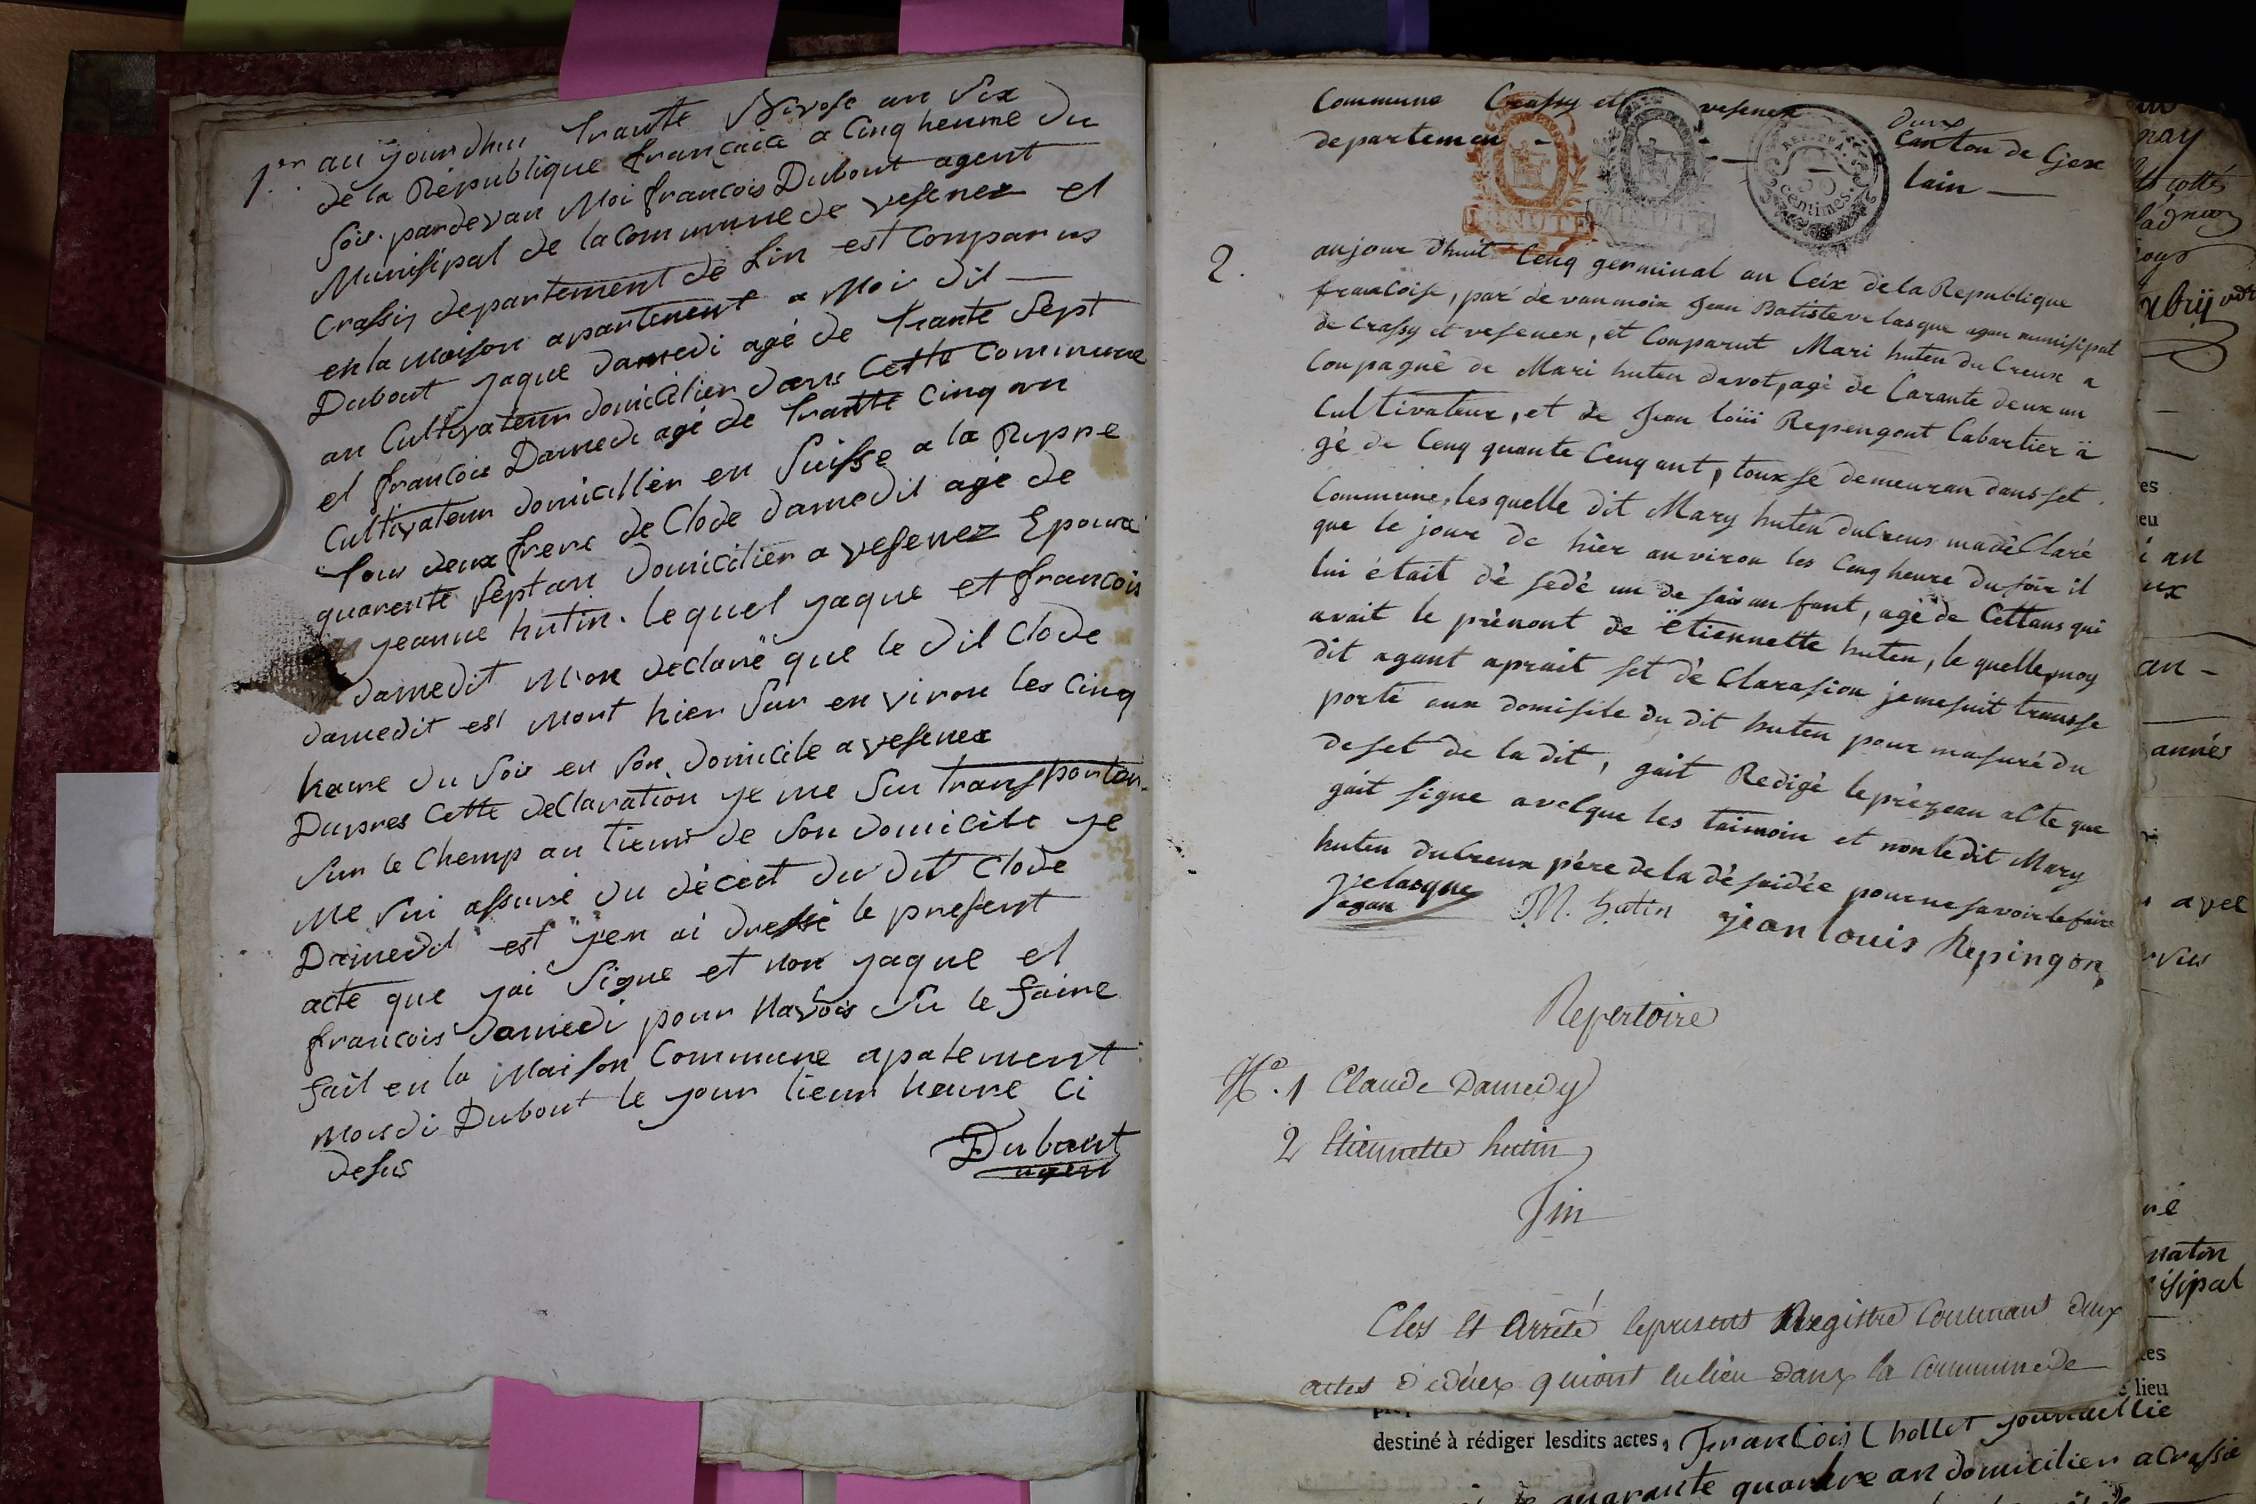 1er au yourdhui trante Nivose an Six
de la République française a Cinq heurre du
Soir pardevan Moi francois Dubout agent
Munisipal de la Commune de vesenex et
Crassiy departement de Lin est Comparus
en la maison apartenent a Moi dit
Dubout yaque damedi agé de trante Sept
an Cultivateur domicilier dans Cette Commune
et francois Damedi agé de trante Cinq an
Cultivateur domicillier en Suisse a la Rippe
tous deux frere de Clode damedit agé de
quarente Sept an domicilier a vesenez Epoux a
yeanne hutin. lequel yaque et francois
damedit M'on declaré que le dit Clode
damedit est Mort hier Sur environ les Cinq
heure du Soir en Son domicile a vesenex
Dapres Cette declaration ye me Sui transporter
Sur le Champ au lieux de Son domicile ye
Me Sui assuré du décedt du dit Clode
Damedit est y'en ai dressé le present
acte que yai Signe et Non yaque et
francois damedi pour Navois Su le faire
fait en la Maison Commune apatement
Mondi Dubout le your lieux heure Ci
desus
Dubout
agent
Commune Crassy et vesenex
departemen
deux
Canton de Gex
lain
MINUTE
MINUTE
50
centimes.
2. aujour dhuit Cenq germinal an Ceix de la Republique
francoise, par de van moix Jean Batiste velasque agan munisipal
de Crassy et vesenex, et Comparut Mari huten du Creux a
Compagné de Mari huten davot, agé de Carante deux an
Cultivateur, et de Jean Loüi Repengont Cabartier ä
gé de Cenq quante Cenq ant, toux se demeuran dans set
Commune, lesquelle dit Mary huten dulreus ma dèClaré
que le jour de hier anviron les Cenq heure du soir il
lui était dé sedé un de sais an fant, agé de Cettans qui
avait le prènont de ëtiennette huten, le quelle, moy
dit agant aprait set dé Clarasion je me suit transse
porté aux domisile du dit huten pour masuré du
deset de la dit, gait Redigé le prèzean alte que
gait signe avelque les taimoin et non ledit Mary
huten dulreux père de la dé saidée pour ne savoir le faire
Velasque
Jagan
M. hutin
jean louis Repingon
Repertoire
No. 1 Claude Damedy
2 Etiennette hutin
Fin
Clos et Arreté lepresent Registre Contenant deux
actes dedéces quiont eu lieu dans la commune de
destiné à rédiger lesdits actes, francois Chollet journallie
quarante quandre an domicilier a Crassie